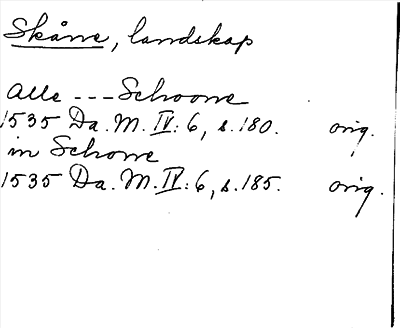 Skåne, landskap
alle --- Schoone
1535 Da. M. IV: 6, s. 180. orig.
in Schone
1535 Da. M. IV: 6, s. 185. orig.